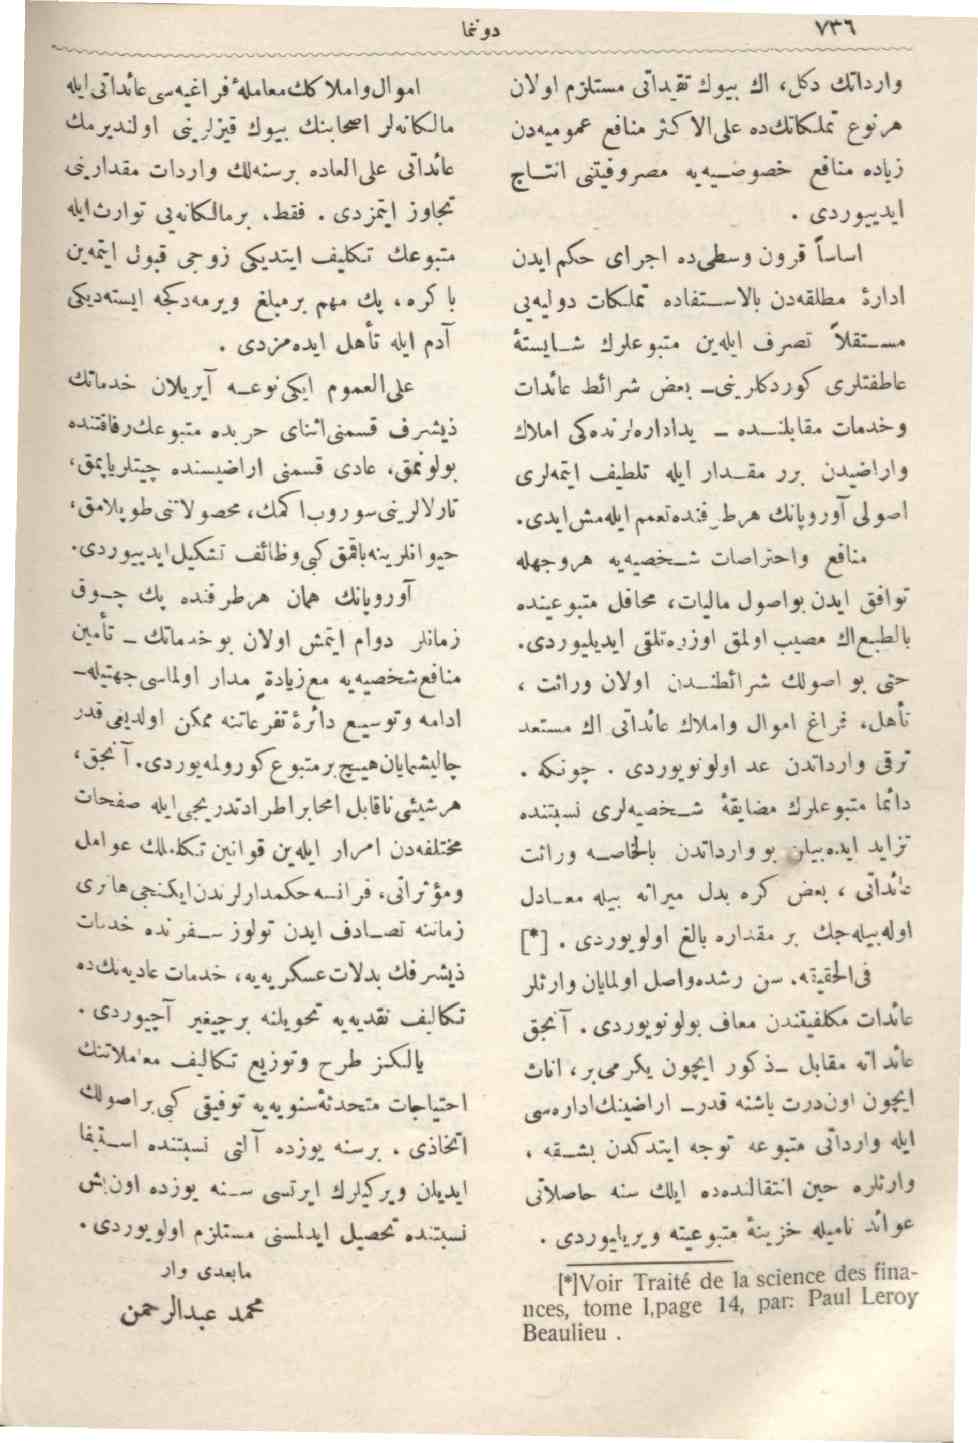 ٧٣٦
دوننما
وارداتك دكل، اك بيوك تقيداتی مستلزم اولان
هرنوع تملكاتك‌ده علی‌الاكثر منافع عموميه‌دن
زياده منافع خصوصـيه‌يه مصروفيتنی انتـاج
ايدييوردی .
اساساً قرون وسطی‌ده اجرای حكم ايدن
ادارۀ مطلقه‌دن بالاسـتفاده تملكات دوليه‌يی
مسـتقلاً تصرف ايله‌ين متبوعلرك شـايستۀ
عاطفتلری كوردكلرينی ـ بعض شرائط عائدات
وخدمات مقابلنـده ـ يداداره‌لرنده‌كی املاك
واراضيدن برر مقـدار ايله تلطيف ايتمه‌لری
اصولی آوروپانك هرطرفنده تعمم ايله‌مش ايدی.
منافع واحتراصات شـخصيه‌يه هروجهله
توافق ايدن بواصول ماليات، محافل متبوعيتده
بالطبع اك مصيب اولمق اوزره تلقی ايديليوردی.
حتی بو اصولك شرائطنـدن اولان وراثت ،
تأهل، فراغ اموال واملاك عائداتی اك مستعد
ترقی وارداتدن عد اولونويوردی . چونكه .
دائما متبوعلرك مضايقۀ شـخصيه‌لری نسبتنده
تزايد ايده‌بيلن بو وارداتدن بالخاصـه وراثت
عائداتی ، بعض كره بدل ميراثه بيله معـادل
اوله‌بيله‌جك بر مقداره بالغ اولويوردی . [*]
فی‌الحقيقه. سن رشده واصل اولمايان وارثلر
عائدات مكلفيتندن معاف بولونويوردی . آنجق
عائداته مقابل ـ ذكور ايچون يكرمی‌بر، اناث
ايچون اون‌درت ياشنه قدر ـ اراضينك اداره‌سی
ايله وارداتی متبوعه توجه ايتدكدن بشـقه ،
وارثلره حين انتقالنده‌ده ايلك سنه حاصلاتی
عوائد ناميله خزينۀ متبوعيته ويريليوردی .
[*]Voir Traité de la science des fina-
nces, tome I,page 14, par: Paul Leroy
Beaulieu .
اموال واملاكك معاملۀ فراغيه‌سی عائداتی ايله
مالكانه‌لر اصحابنك بيوك قيزلرينی اولنديرمك
عائداتی علی‌العاده برسنه‌لك واردات مقدارينی
تجاوز ايتمزدی . فقط، برمالكانه‌يی توارث ايله
متبوعك تكليف ايتديكی زوجی قبول ايتمه‌ين
باكره، پك مهم برمبلغ ويرمه‌دكجه ايسته‌ديكی
آدم ايله تأهل ايده‌مزدی .
علی‌العموم ايكی نوعـه آيريلان خدماتك
ذيشرف قسمنی اثنای حربده متبوعك رفاقتنده
بولونمق، عادی قسمنی اراضيسنده چيتلر ياپمق،
تارلالرينی سوروب اكمك، محصولاتنی طوپلامق،
حيوانلرينه باقمق كبی وظائف تشكيل ايدييوردی.
آوروپانك همان هرطرفنده پك چـوق
زمانلر دوام ايتمش اولان بو خدماتك ـ تأمين
منافع شخصيه‌يه مع زيادة مدار اولماسی جهتيله ـ
ادامه وتوسيع دائرۀ تفرعاتنه ممكن اولديغی قدر
چاليشمايان هيچ برمتبوع كورولمه‌يوردی. آنجق،
هرشيئی ناقابل امحا بر اطراد تدريجی ايله صفحات
مختلفه‌دن امرار ايله‌ين قوانين تكاملك عوامل
ومؤثراتی، فرانسه حكمدارلرندن ايكنجی هانری
زماننه تصـادف ايدن تولوز سـفرنده خدمات
ذيشرفك بدلات عسكريه‌يه، خدمات عاديه‌نك‌ده
تكاليف نقديه‌يه تحويلنه برچيغير آچيوردی .
يالكز طرح وتوزيع تكاليف معاملاتنك
احتياجات متحدثۀ سنويه‌يه توفيقی كبی بر اصولك
اتخاذی . برسنه يوزده آلتی نسبتنده اسـتيفا
ايديلن ويركيلرك ايرتسی سـنه يوزده اون‌بش
نسبتنده تحصيل ايدلمسنی مستلزم اولويوردی .
مابعدی وار
محمد عبدالرحمن